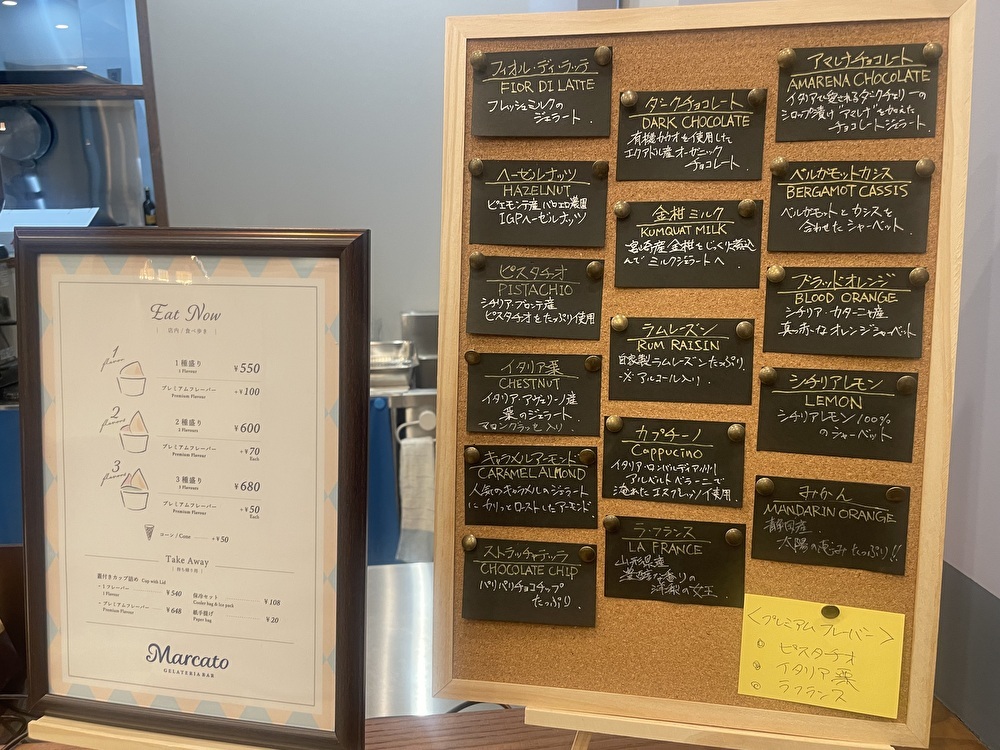 Eat Now
[ 店内 / 食べ歩き ]
1
flavor
1種盛り
1 Flavour
¥550
プレミアムフレーバー
Premium Flavour
+¥100
2
flavors
2種盛り
2 Flavours
¥600
プレミアムフレーバー
Premium Flavour
+¥70
Each
3
flavors
3種盛り
3 Flavours
¥680
プレミアムフレーバー
Premium Flavour
+¥50
Each
コーン / Cone +¥50
Take Away
[ 持ち帰り用 ]
蓋付きカップ詰め Cup with Lid
・1フレーバー
1 Flavour
¥540
・プレミアムフレーバー
Premium Flavour
¥648
保冷セット
Cooler bag & ice pack
¥108
紙手提げ
Paper bag
¥20
Marcato
GELATERIA BAR
フィオル・ディ・ラッテ
FIOR DI LATTE
フレッシュミルクの
ジェラート
ヘーゼルナッツ
HAZELNUT
ピエモンテ産 バロエロ農園
IGPヘーゼルナッツ
ピスタチオ
PISTACHIO
シチリア・ブロンテ産
ピスタチオをたっぷり使用
イタリア栗
CHESTNUT
イタリア・アヴェリーノ産
栗のジェラート
マロングラッセ入り
キャラメルアーモンド
CARAMEL ALMOND
人気のキャラメルのジェラート
にカリッとローストしたアーモンド.
ストラッチャテッラ
CHOCOLATE CHIP
パリパリチョコチップ
たっぷり.
ダークチョコレート
DARK CHOCOLATE
有機カカオを使用した
エクアドル産オーガニック
チョコレート
金柑ミルク
KUMQUAT MILK
宮崎産金柑をじっくり煮込
んでミルクジェラートへ
ラムレーズン
RUM RAISIN
自家製ラムレーズンたっぷり.
※アルコール入り!
カプチーノ
Cappucino
イタリア・ロンバルディア州
アルベルト ベラーニで
淹れたエスプレッソ使用.
ラ・フランス
LA FRANCE
山形県産
香りの
洋梨の女王
アマレナチョコレート
AMARENA CHOCOLATE
イタリアで愛されるダークチェリーの
シロップ漬け"アマレナ"を加えた
チョコレートジェラート.
ベルガモットカシス
BERGAMOT CASSIS
ベルガモットとカシスを
合わせたシャーベット.
ブラッドオレンジ
BLOOD ORANGE
シチリア・カターニャ産
真っ赤なオレンジシャーベット
シチリアレモン
LEMON
シチリアレモン100%
のシャーベット
みかん
MANDARIN ORANGE
静岡産
太陽の恵みたっぷり!!
<プレミアムフレーバー>
ピスタチオ
イタリア栗
ラフランス